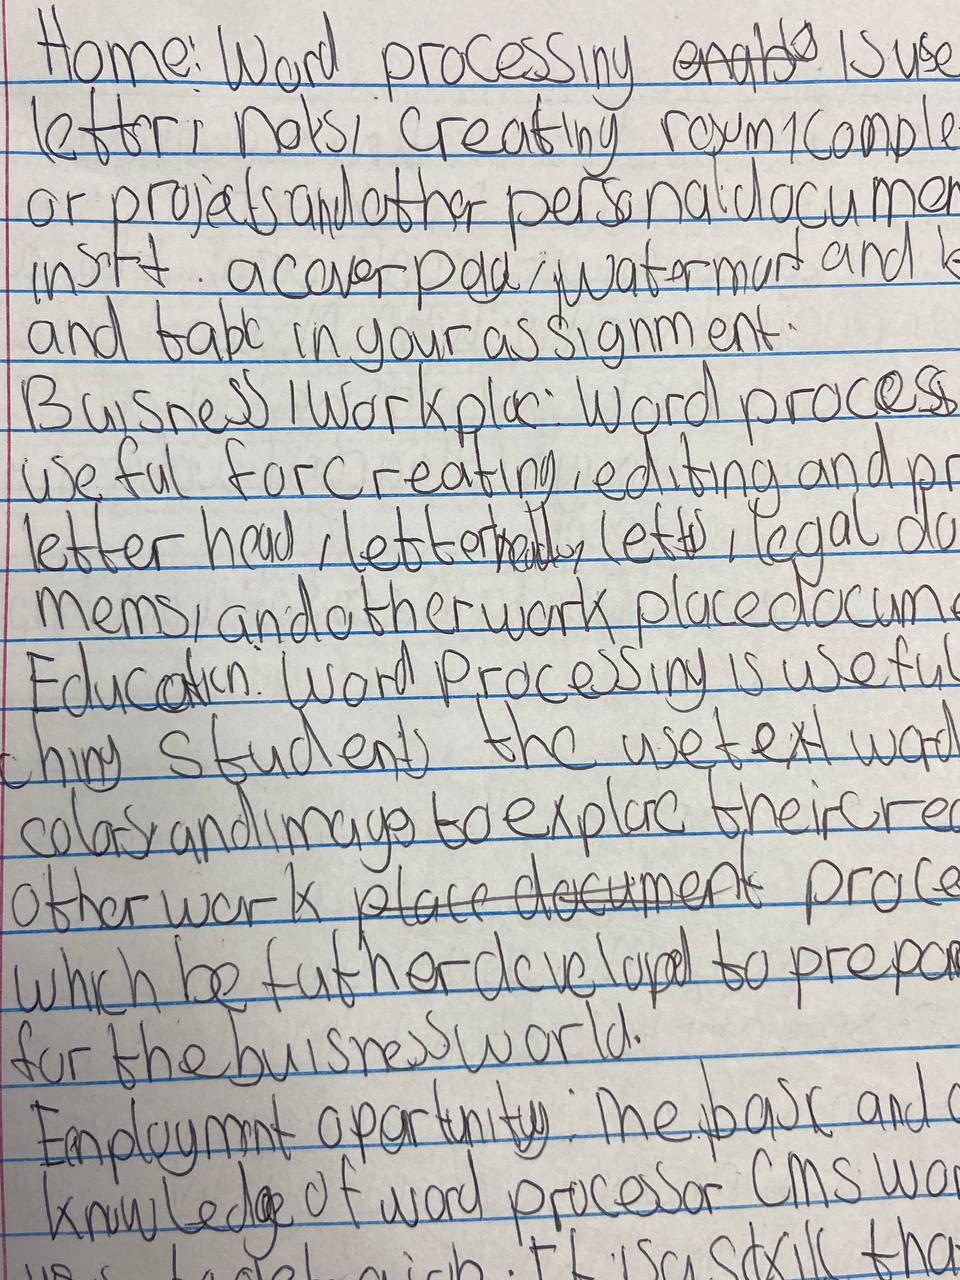 Home: Word processing enable is use
letter, nots, creating roum, comple
or projets and other personal documen
insrt. a cover pag, watermart and
and tabl in your assignment.
Buisness / Workplac: Word process
useful for creating, editing and pr
letter head, letterheads, letts, legal do
mems, and other work place docume
Education: Word Processing is useful
ching students the use text word
colors, and image to explore their crea
other work place document proce
which be futher developd to prepar
for the buisness world.
Employmnt opartunity: The basic and
knowledge of word processor CMS wor
It is a skill tha